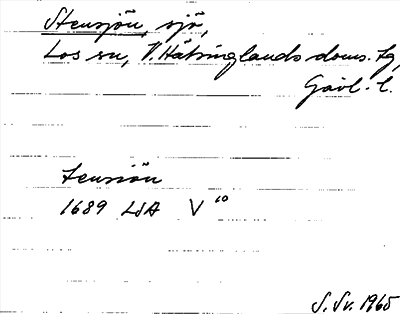 Stensjön, sjö,
Los sn, V. Hälsinglands doms. tg,
Gävl. l.
Tensiön
1689 LSA V 10
S. Sv. 1965